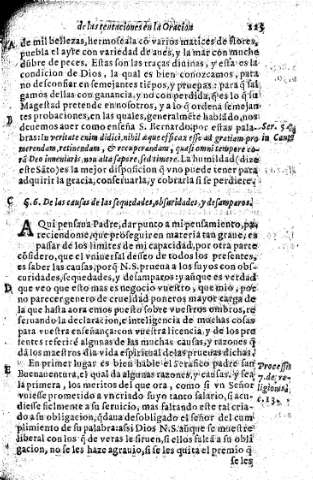 de las tentaciones en la Oracion 223
A de mil bellezas, hermosea la cõ varios matices de flores,
puebla el ayre con variedad de aues, y la mar con muche
dũbre de peces. Estas son las traças diuinas, y essa es la
condicion de Dios, la qual es bien conozcamos, para
no desconfiar en semejantes tiẽpos, y pruepas: para q̃ sal
gamos dellas con ganancia, y no con perdida, q̃ es lo q̃ su
Magestad pretende en nosotros, y a lo q̃ ordena semejan
tes probaciones, en las quales, generalmẽte hablado, nos
deuemos auer como enseña S. Bernardo, por estas pala-
bras: In veritate enim didici, nihil aque efficax esse ad gratiam pro
merendam, retinendam, & recuperandam, quasi omni tempore co-
rã Deo inueniaris, non alta sapere, sed timere. La humildad (dize
este Sãto) es la mejor disposiciõ q̃ vno puede tener para
adquirir la gracia, conseruarla, y cobrarla si se perdiere.
Ser. 54.
in Cant.
C §. 6. De las causas de las sequedades, obsuridades, y desamparos.
AQui pensaua Padre, dar punto a mi pensamiento, pa
reciendome, que proseguir en materia tan graue, es
pasar de los limites de mi capacidad, por otra parte
cõsidero, que el vniuersal deseo de todos los presentes,
es saber las causas, porq̃ N.S. prueua a los suyos con obs-
curidades, sequedades, y desamparos: y aũque es verdad
D que veo que esto mas es negocio vuestro, que mio, por
no parecer genero de crueldad poneros mayor carga de
la que hasta aora emos puesto sobre vuestros ombros, re
seruando la declaracion, e inteligencia de muchas cosas
para vuestra enseñança: con vuestra licencia, y de los pre
sentes referirè algunas de las muchas causas, y razones q̃
dã los maestros dla vida espiritual de las prueuas dichas.
E En primer lugar es bien hable el serafico padre san
Buenauentura, el qual da algunas razones, y causas. y sea
la primera, los meritos del que ora, como si vn Señor
vuiesse prometido a vn criado suyo tanto salario, si acu-
diesse ficilmente a su seruicio, mas faltando este tal cria-
do a su obligacion, q̃daua desobligado el señor del cum
plimiento de su palabra: assi Dios N.S. aũque se muestre
liberal con los q̃ de veras le siruen, si ellos faltã a su obli
gacion, no se les haze agrauio, si se les quita el premio q̃
Processus
7. de re-
ligiosis
c. 13.
se les